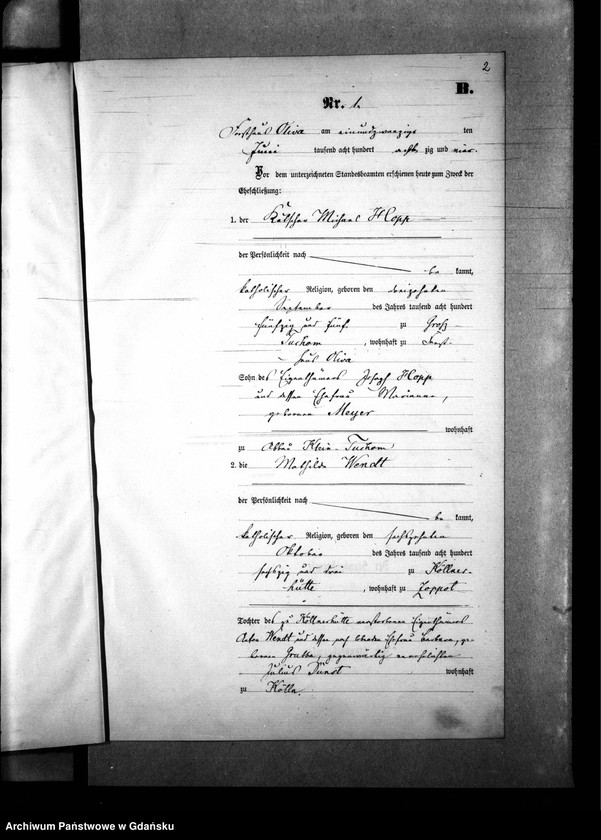 2
B.
Nr. 1.
Forsthaus Oliva am einundzwanzigs ten
Juni tausend acht hundert acht zig und vier.
Vor dem unterzeichneten Standesbeamten erschienen heute zum Zweck der
Eheschließung:
1. der Kutscher Michael Hopp
der Persönlichkeit nach
be kannt,
katholischer Religion, geboren den dreizehnten
September des Jahres tausend acht hundert
fünfzig und fünf zu Groß
Tuchom, wohnhaft zu Forst-
haus Oliva
Sohn des Eigenthümers Joseph Hopp
und dessen Ehefrau Marianna,
geborenen Meyer
wohnhaft
zu Abbau Klein-Tuchom
2. die Mathilde Wendt
der Persönlichkeit nach
be kannt,
katholischer Religion, geboren den sechszehnten
Oktober des Jahres tausend acht hundert
sechszig und drei zu Köllner-
hütte, wohnhaft zu Zoppot
Tochter des zu Köllnerhütte verstorbenen Eigenthümers
Wendt und dessen noch lebenden Ehefrau Barbara, ge-
borenen, gegenwärtig verehelichten
Julius Dunst wohnhaft
zu Kölln.
Archiwum Państwowe w Gdańsku